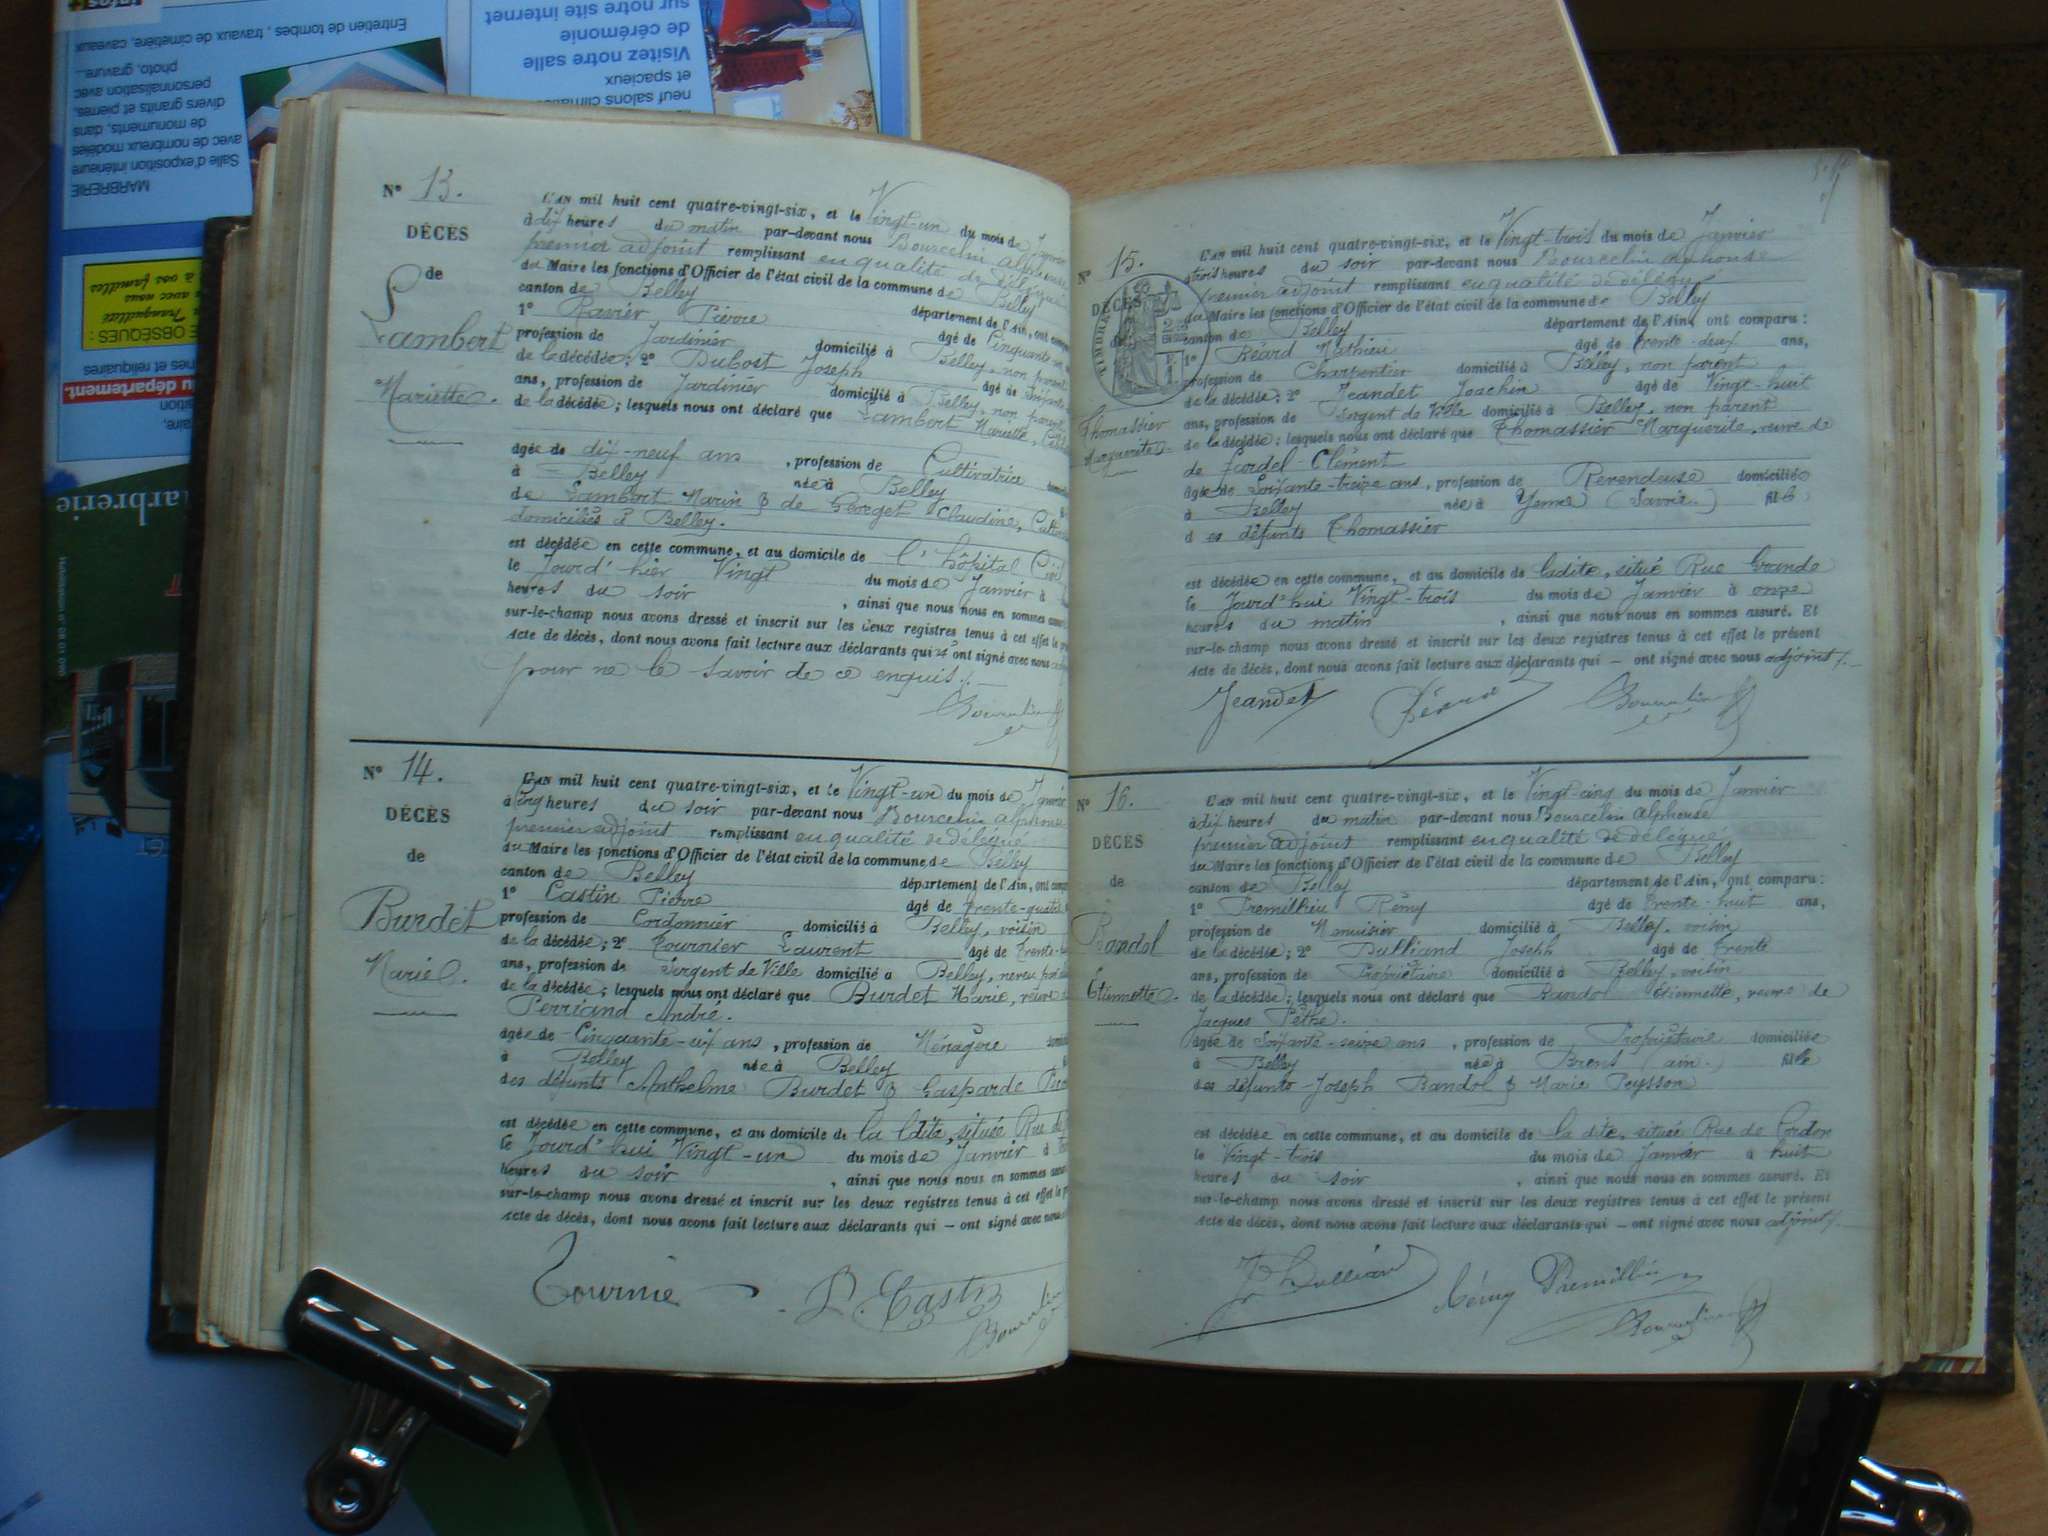 Nº 13.
DÉCÈS
de
Lambert
Mariette.
L'AN mil huit cent quatre-vingt-six, et le Vingt-un du mois de
à dix heures du matin par-devant nous Bourcelin Alphonse
premier adjoint remplissant en qualité de délégué
du Maire les fonctions d'Officier de l'état civil de la commune de Belley
canton de Belley département de l'Ain, ont
1º Ravier Pierre âgé de Cinquante
profession de Jardinier domicilié à Belley, non parent
de la décédée; 2º Dubost Joseph âgé de
ans, profession de Jardinier domicilié à Belley, non parent
de la décédée; lesquels nous ont déclaré que Lambert Mariette,
âgée de dix-neuf ans, profession de Cultivatrice
à Belley née à Belley
de Lambert Marin & de Georget Claudine,
domiciliés à Belley.
est décédée en cette commune, et au domicile de l'hôpital
le Jourd'hier Vingt du mois de Janvier à
heures du soir, ainsi que nous nous en sommes assuré
sur-le-champ nous avons dressé et inscrit sur les deux registres tenus à cet effet le
acte de décès, dont nous avons fait lecture aux déclarants qui n'ont signé avec nous
pour ne le savoir de ce enquis ./.
Bourcelin
Nº 14.
DÉCÈS
de
Burdet
Marie.
L'AN mil huit cent quatre-vingt-six, et le Vingt-un du mois de
à cinq heures du soir par-devant nous Bourcelin Alphonse
premier adjoint remplissant en qualité de délégué
du Maire les fonctions d'Officier de l'état civil de la commune de Belley
canton de Belley département de l'Ain, ont
1º Castin Pierre âgé de trente-quatre
profession de Cordonnier domicilié à Belley, voisin
de la décédée; 2º Tournier Laurent âgé de trente
ans, profession de Sergent de Ville domicilié à Belley, neveu
de la décédée; lesquels nous ont déclaré que Burdet Marie, veuve
Perriand André.
âgée de Cinquante-six ans, profession de Ménagère
à Belley née à Belley
des défunts Anthelme Burdet & Gasparde
est décédée en cette commune, et au domicile de la ldite, située Rue
le Jourd'hui Vingt-un du mois de Janvier à
heures du soir, ainsi que nous nous en sommes
sur-le-champ nous avons dressé et inscrit sur les deux registres tenus à cet effet le
acte de décès, dont nous avons fait lecture aux déclarants qui — ont signé avec nous
Tournie P. Castin
Bourcelin
Nº 15.
DÉCÈS
de
Thomassier
Marguerite.
L'AN mil huit cent quatre-vingt-six, et le Vingt-trois du mois de Janvier
à trois heures du soir par-devant nous Bourcelin Alphonse
premier adjoint remplissant en qualité de délégué
du Maire les fonctions d'Officier de l'état civil de la commune de Belley
canton de Belley département de l'Ain, ont comparu:
1º Réard Mathieu âgé de trente-deux ans,
profession de Charpentier domicilié à Belley, non parent
de la décédée; 2º Jeandet Joachin âgé de Vingt-huit
ans, profession de Sergent de Ville domicilié à Belley, non parent
de la décédée; lesquels nous ont déclaré que Thomassier Marguerite, veuve de
de Jordel Clément
âgée de Soixante-treize ans, profession de Revendeuse domiciliée
à Belley née à Yenne (Savoie) fille
des défunts Thomassier
est décédée en cette commune, et au domicile de ladite, situé Rue Grande
le Jourd'hui Vingt-trois du mois de Janvier à onze
heures du matin, ainsi que nous nous en sommes assuré. Et
sur-le-champ nous avons dressé et inscrit sur les deux registres tenus à cet effet le présent
acte de décès, dont nous avons fait lecture aux déclarants qui — ont signé avec nous adjoint ./.
Jeandet Réard Bourcelin
Nº 16.
DÉCÈS
de
Bandol
Etiennette.
L'AN mil huit cent quatre-vingt-six, et le Vingt-cinq du mois de Janvier
à dix heures du matin par-devant nous Bourcelin Alphonse
premier adjoint remplissant en qualité de délégué
du Maire les fonctions d'Officier de l'état civil de la commune de Belley
canton de Belley département de l'Ain, ont comparu:
1º Premillieu Rémy âgé de trente-huit ans,
profession de Menuisier domicilié à Belley, voisin
de la décédée; 2º Dulliand Joseph âgé de trente
ans, profession de Propriétaire domicilié à Belley, voisin
de la décédée; lesquels nous ont déclaré que Bandol Etiennette, veuve de
Jacques Pethe.
âgée de Soixante-seize ans, profession de Propriétaire domiciliée
à Belley née à Brens (ain.) fille
des défunts Joseph Bandol & Marie Peysson
est décédée en cette commune, et au domicile de la dite, située Rue de Cordon
le Vingt-trois du mois de Janvier à huit
heures du soir, ainsi que nous nous en sommes assuré. Et
sur-le-champ nous avons dressé et inscrit sur les deux registres tenus à cet effet le présent
acte de décès, dont nous avons fait lecture aux déclarants qui — ont signé avec nous adjoint ./.
J Dulliand Rémy Premillieu
Bourcelin
Entretien de tombes, travaux de cimetière, caveaux
photo, gravure...
personnalisation avec
divers granits et pierres,
de monuments, dans
avec de nombreux modèles
Salle d'exposition intérieure
MARBRERIE
sur notre site internet
de cérémonie
Visitez notre salle
et spacieux
neuf salons
OBSÈQUES :
Tranquillité
avec nous
à vos familles
nes et reliquaires
du département.
arbrerie